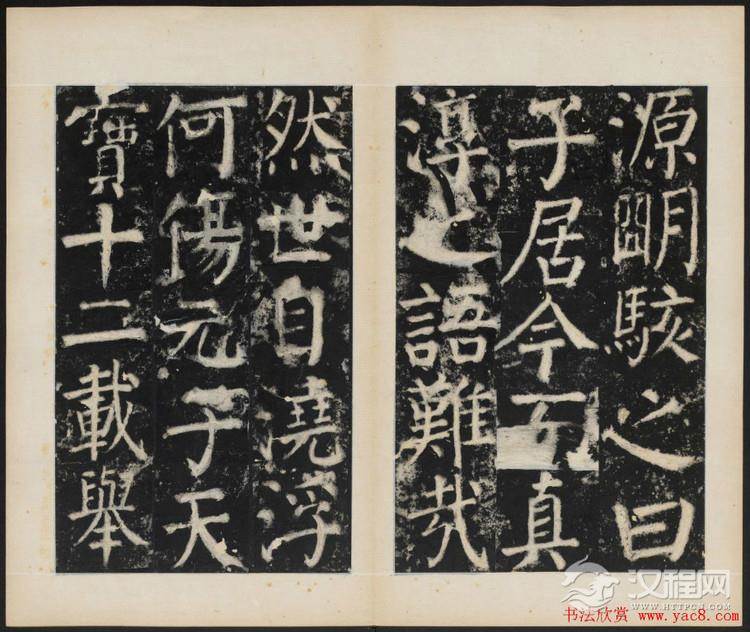 源朙駭之曰
子居今而真
淳之語難哉
然世自澆浮
何傷元子天
寶十二載舉
汉程网
WWW.HTTPCN.COM
书法欣赏 www.yac8.com